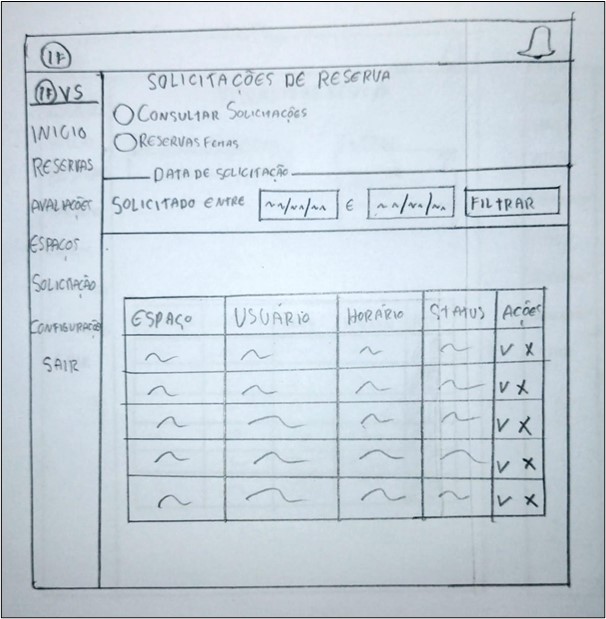 IF
IF VS
INICIO
RESERVAS
AVALIAÇÕES
ESPAÇOS
SOLICITAÇÃO
CONFIGURAÇÕES
SAIR
SOLICITAÇÕES DE RESERVA
CONSULTAR SOLICITAÇÕES
RESERVAS FEITAS
DATA DE SOLICITAÇÃO
SOLICITADO ENTRE ~~/~~/~~ E ~~/~~/~~ FILTRAR
ESPAÇO USUÁRIO HORÁRIO STATUS AÇÕES
V X
V X
V X
V X
V X